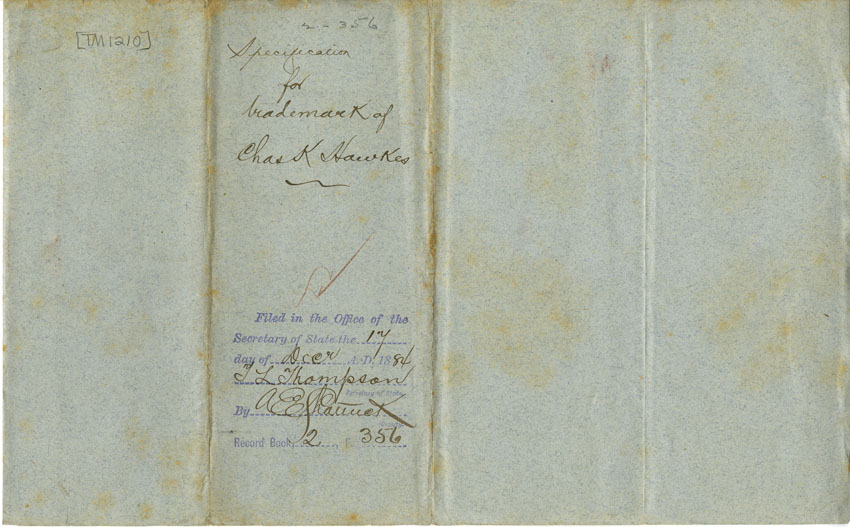 [TM1210]
2-356
Specification
for
trademark of
Chas K Hawkes
Filed in the Office of the
Secretary of State the 17
day of Decr A.D. 1884
T L Thompson
Secretary of State
By A E
Record Book, 2, P. 356